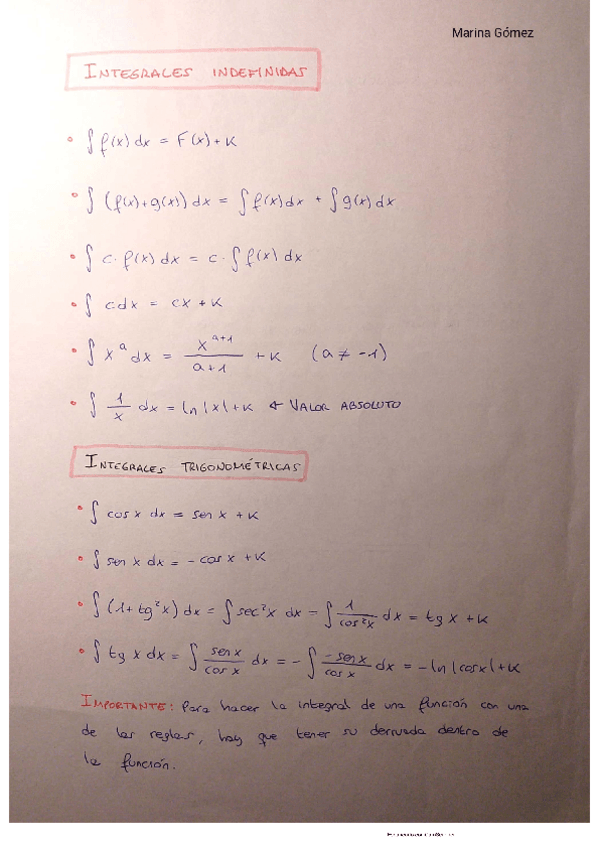 Marina Gómez
INTEGRALES INDEFINIDAS
• ∫ f(x) dx = F(x) + K
• ∫ (f(x)+g(x)) dx = ∫ f(x) dx + ∫ g(x) dx
• ∫ c · f(x) dx = c · ∫ f(x) dx
• ∫ c dx = cx + K
• ∫ x^a dx = x^(a+1) / (a+1) + K (a ≠ -1)
• ∫ 1/x dx = ln |x| + K ← VALOR ABSOLUTO
INTEGRALES TRIGONOMÉTRICAS
• ∫ cos x dx = sen x + K
• ∫ sen x dx = - cos x + K
• ∫ (1 + tg²x) dx = ∫ sec²x dx = ∫ 1/cos²x dx = tg x + K
• ∫ tg x dx = ∫ sen x/cos x dx = - ∫ -sen x/cos x dx = - ln |cos x| + K
IMPORTANTE: Para hacer la integral de una función con una
de las reglas, hay que tener su derivada dentro de
la función.